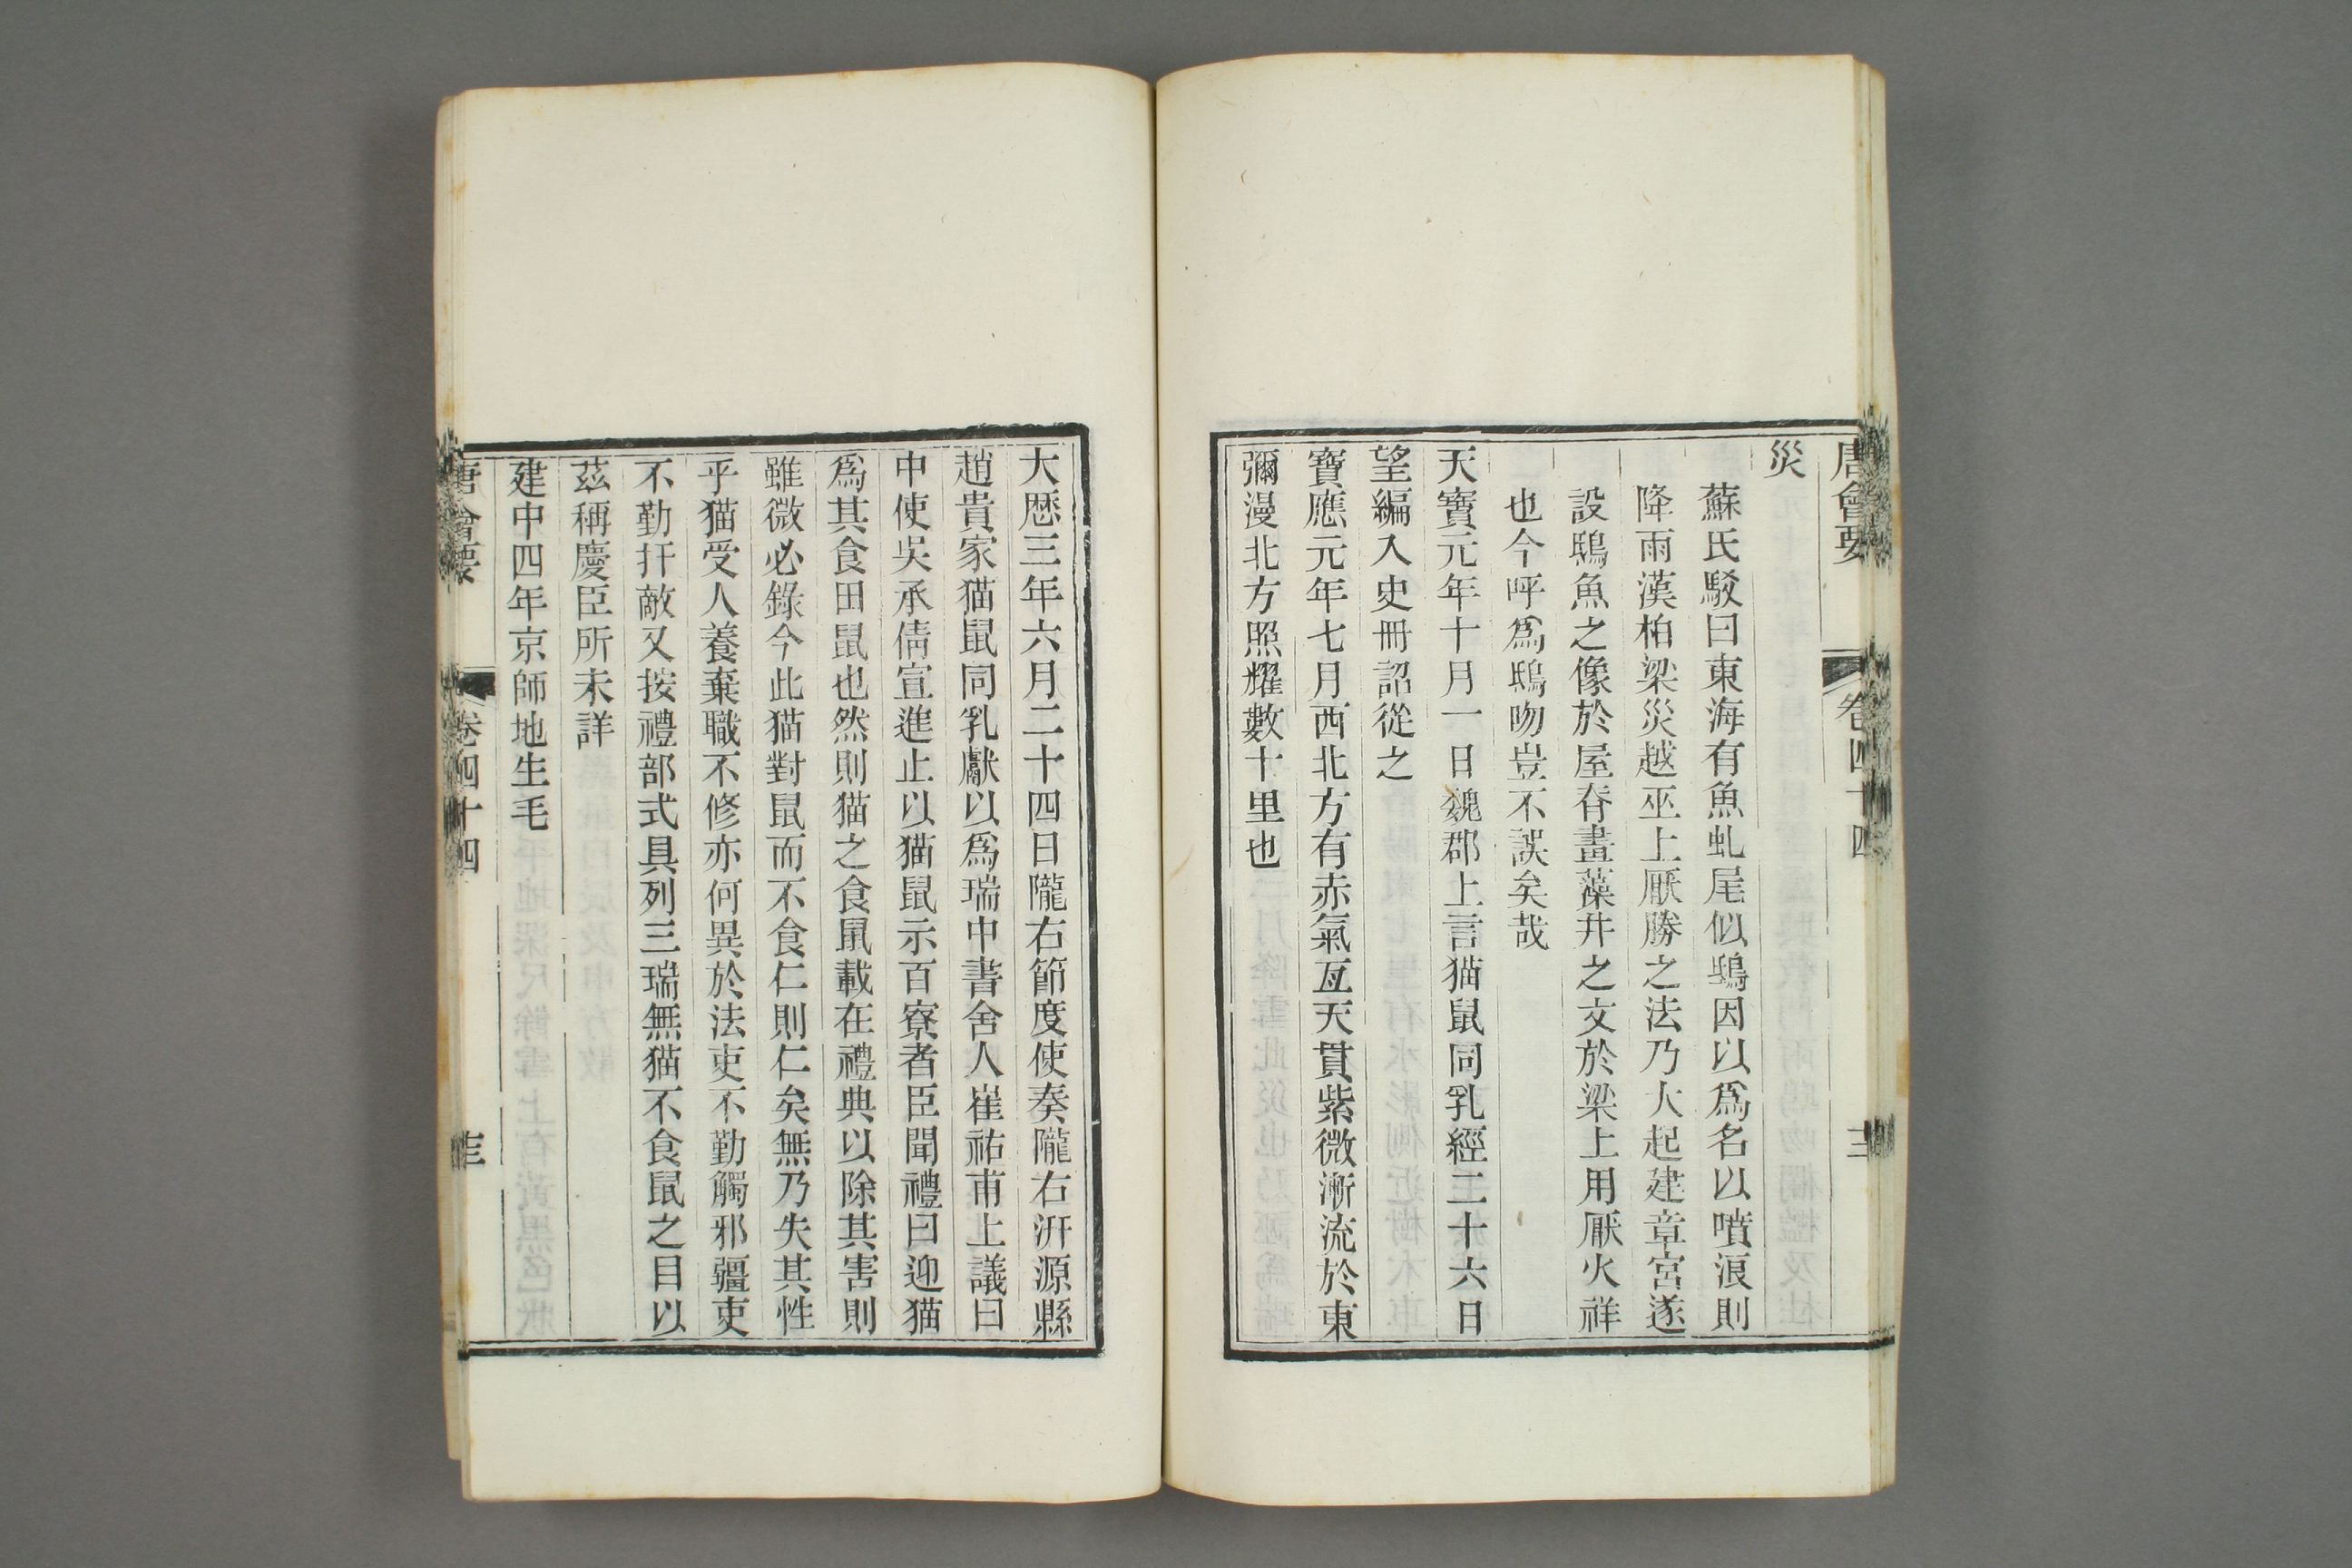 唐會要 卷四十四
災
蘇氏駁曰東海有魚虬尾似鴟因以爲名以噴浪則
降雨漢柏梁災越巫上厭勝之法乃大起建章宮遂
設鴟魚之像於屋脊畫藻井之文於梁上用厭火祥
也今呼爲鴟吻豈不誤矣哉
天寶元年十月一日魏郡上言猫鼠同乳經二十六日
望編入史冊詔從之
寶應元年七月西北方有赤氣亙天貫紫微漸流於東
彌漫北方照耀數十里也
大歷三年六月二十四日隴右節度使奏隴右汧源縣
趙貴家猫鼠同乳獻以爲瑞中書舍人崔祐甫上議曰
中使吳承倩宣進止以猫鼠示百寮者臣聞禮曰迎猫
爲其食田鼠也然則猫之食鼠載在禮典以除其害則
雖微必錄今此猫對鼠而不食仁則仁矣無乃失其性
乎猫受人養棄職不修亦何異於法吏不勤觸邪疆吏
不勤扞敵又按禮部式具列三瑞無猫不食鼠之目以
茲稱慶臣所未詳
建中四年京師地生毛
唐會要 卷四十四